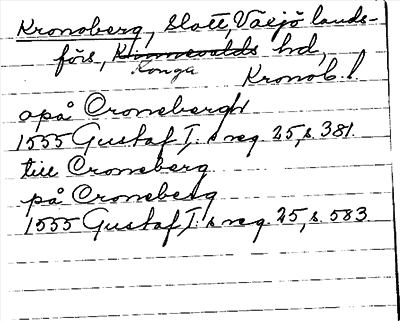 Kronoberg, slott, Växjö lands-
förs, Kinnevalds hd,
Konga
Kronob. l.
opå Cronebergh
1555 Gustaf I:s reg. 25, s. 381.
till Croneberg
på Croneberg
1555 Gustaf I:s reg. 25, s. 583.